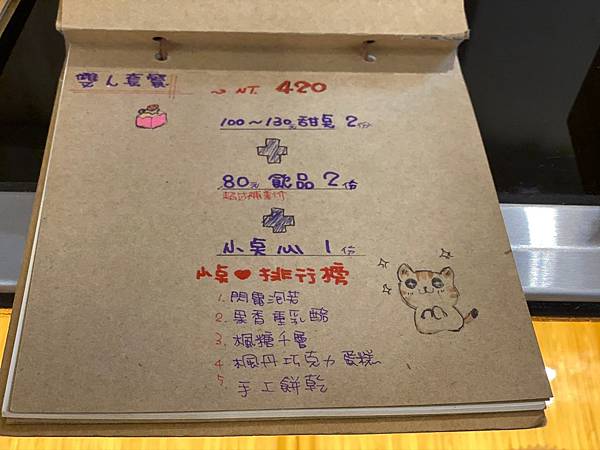 雙人套餐 ~NT. 420
100~130元甜點 2份
80元 飲品 2份
超過補差價
小桌心 1份
桌❤排行榜
1. 閃電泡芙
2. 果香重乳酪
3. 楓糖千層
4. 楓丹巧克力蛋糕
5. 手工餅乾